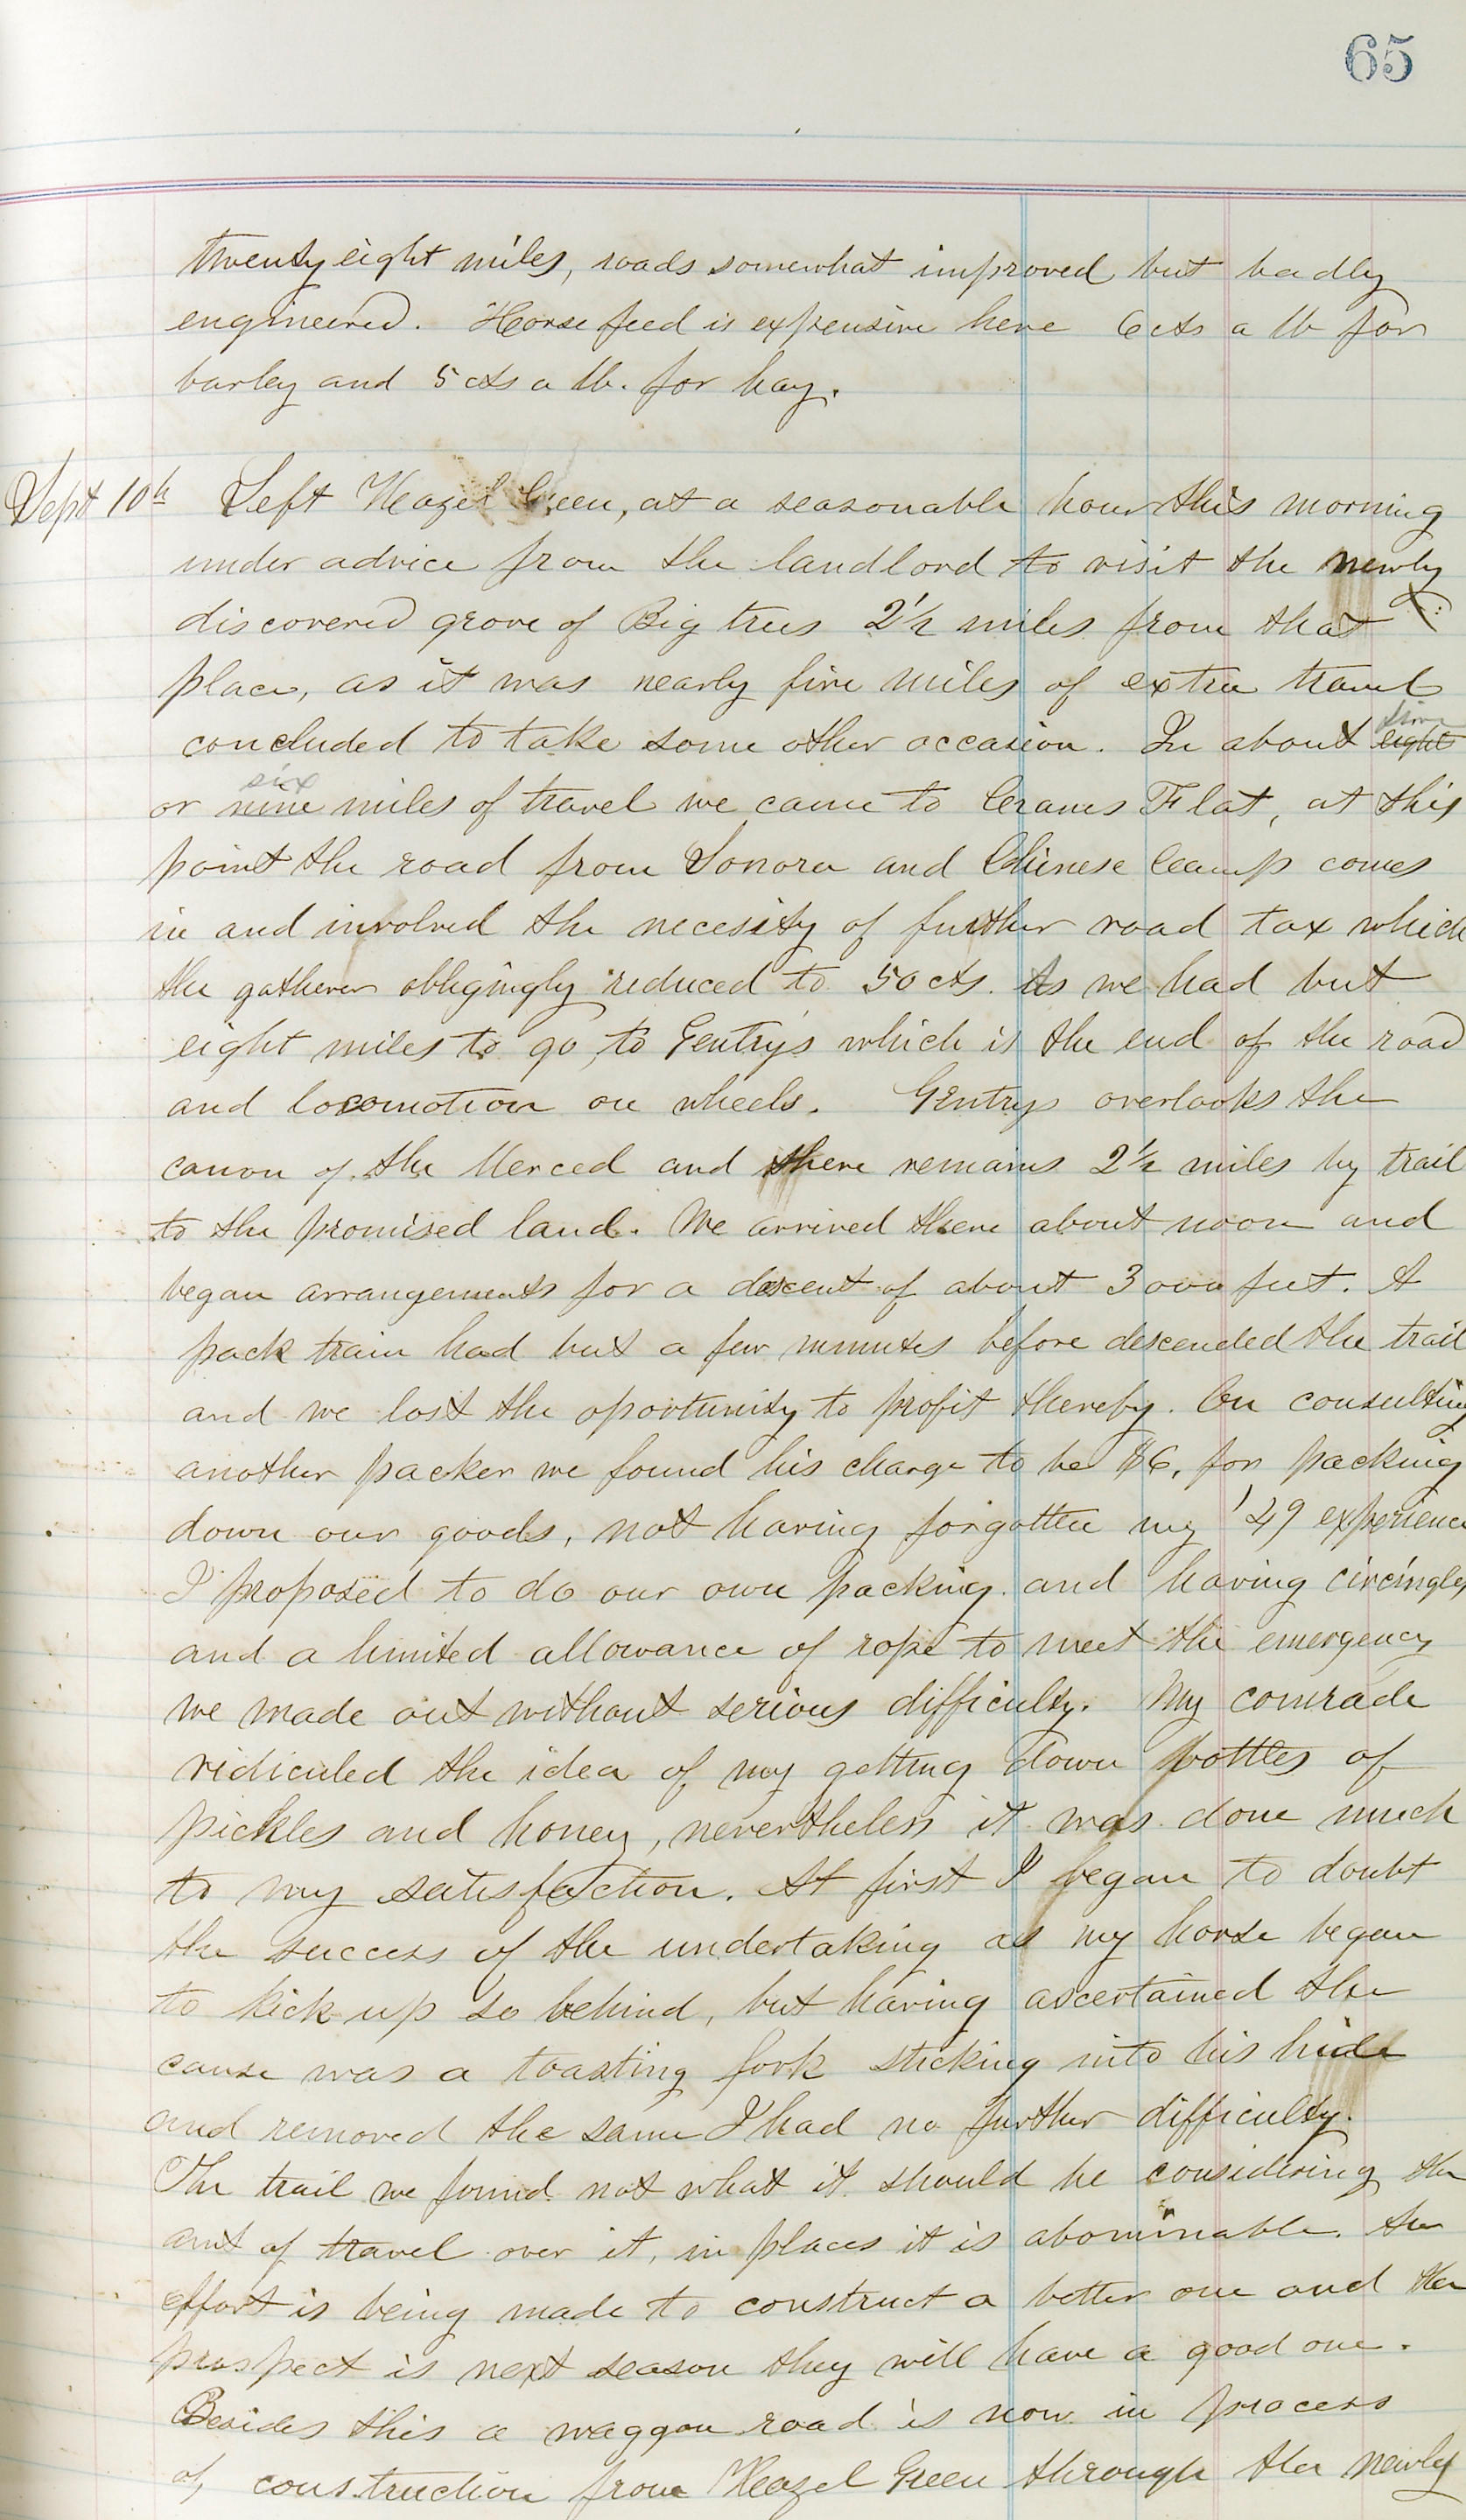 65
twenty eight miles, roads somewhat improved but badly
engineered. Horse feed is expensive here 6 cts a lb for
barley and 5 cts a lb. for hay.
Sept 10th Left Hazel Green, at a seasonable hour this morning
under advice from the landlord to visit the newly
discovered grove of Big trees 2 1/2 miles from that
place, as it was nearly five miles of extra travel
concluded to take some other occasion. In about eight
six
or nine miles of travel we came to Cranes Flat, at this
point the road from Sonora and Chinese Camp comes
in and involved the necesity of further road tax which
the gatherer obligingly reduced to 50 cts. As we had but
eight miles to go, to Gentrys which is the end of the road
and locomotion on wheels. Gentrys overlooks the
canon of the Merced and there remains 2 1/2 miles by trail
to the promised land. We arrived there about noon and
began arrangements for a descent of about 3000 feet. A
pack train had but a few minutes before descended the trail
and we lost the oportunity to profit thereby. On consulting
another packer we found his charge to be $6, for packing
down our goods, not having forgotten my '49 experience
I proposed to do our own packing and having circingles
and a limited allowance of rope to meet the emergency
we made out without serious difficulty. My comrade
ridiculed the idea of my getting down bottles of
pickles and honey, nevertheless it was done much
to my satisfaction. At first I began to doubt
the success of the undertaking as my horse began
to kick up so behind, but having ascertained the
cause was a toasting fork sticking into his hide
and removed the same I had no further difficulty.
The trail we found not what it should be considering the
amt of travel over it, in places it is abominable. An
effort is being made to construct a better one and the
prospect is next season they will have a good one.
Besides this a waggon road is now in process
of construction from Hazel Green through the newly